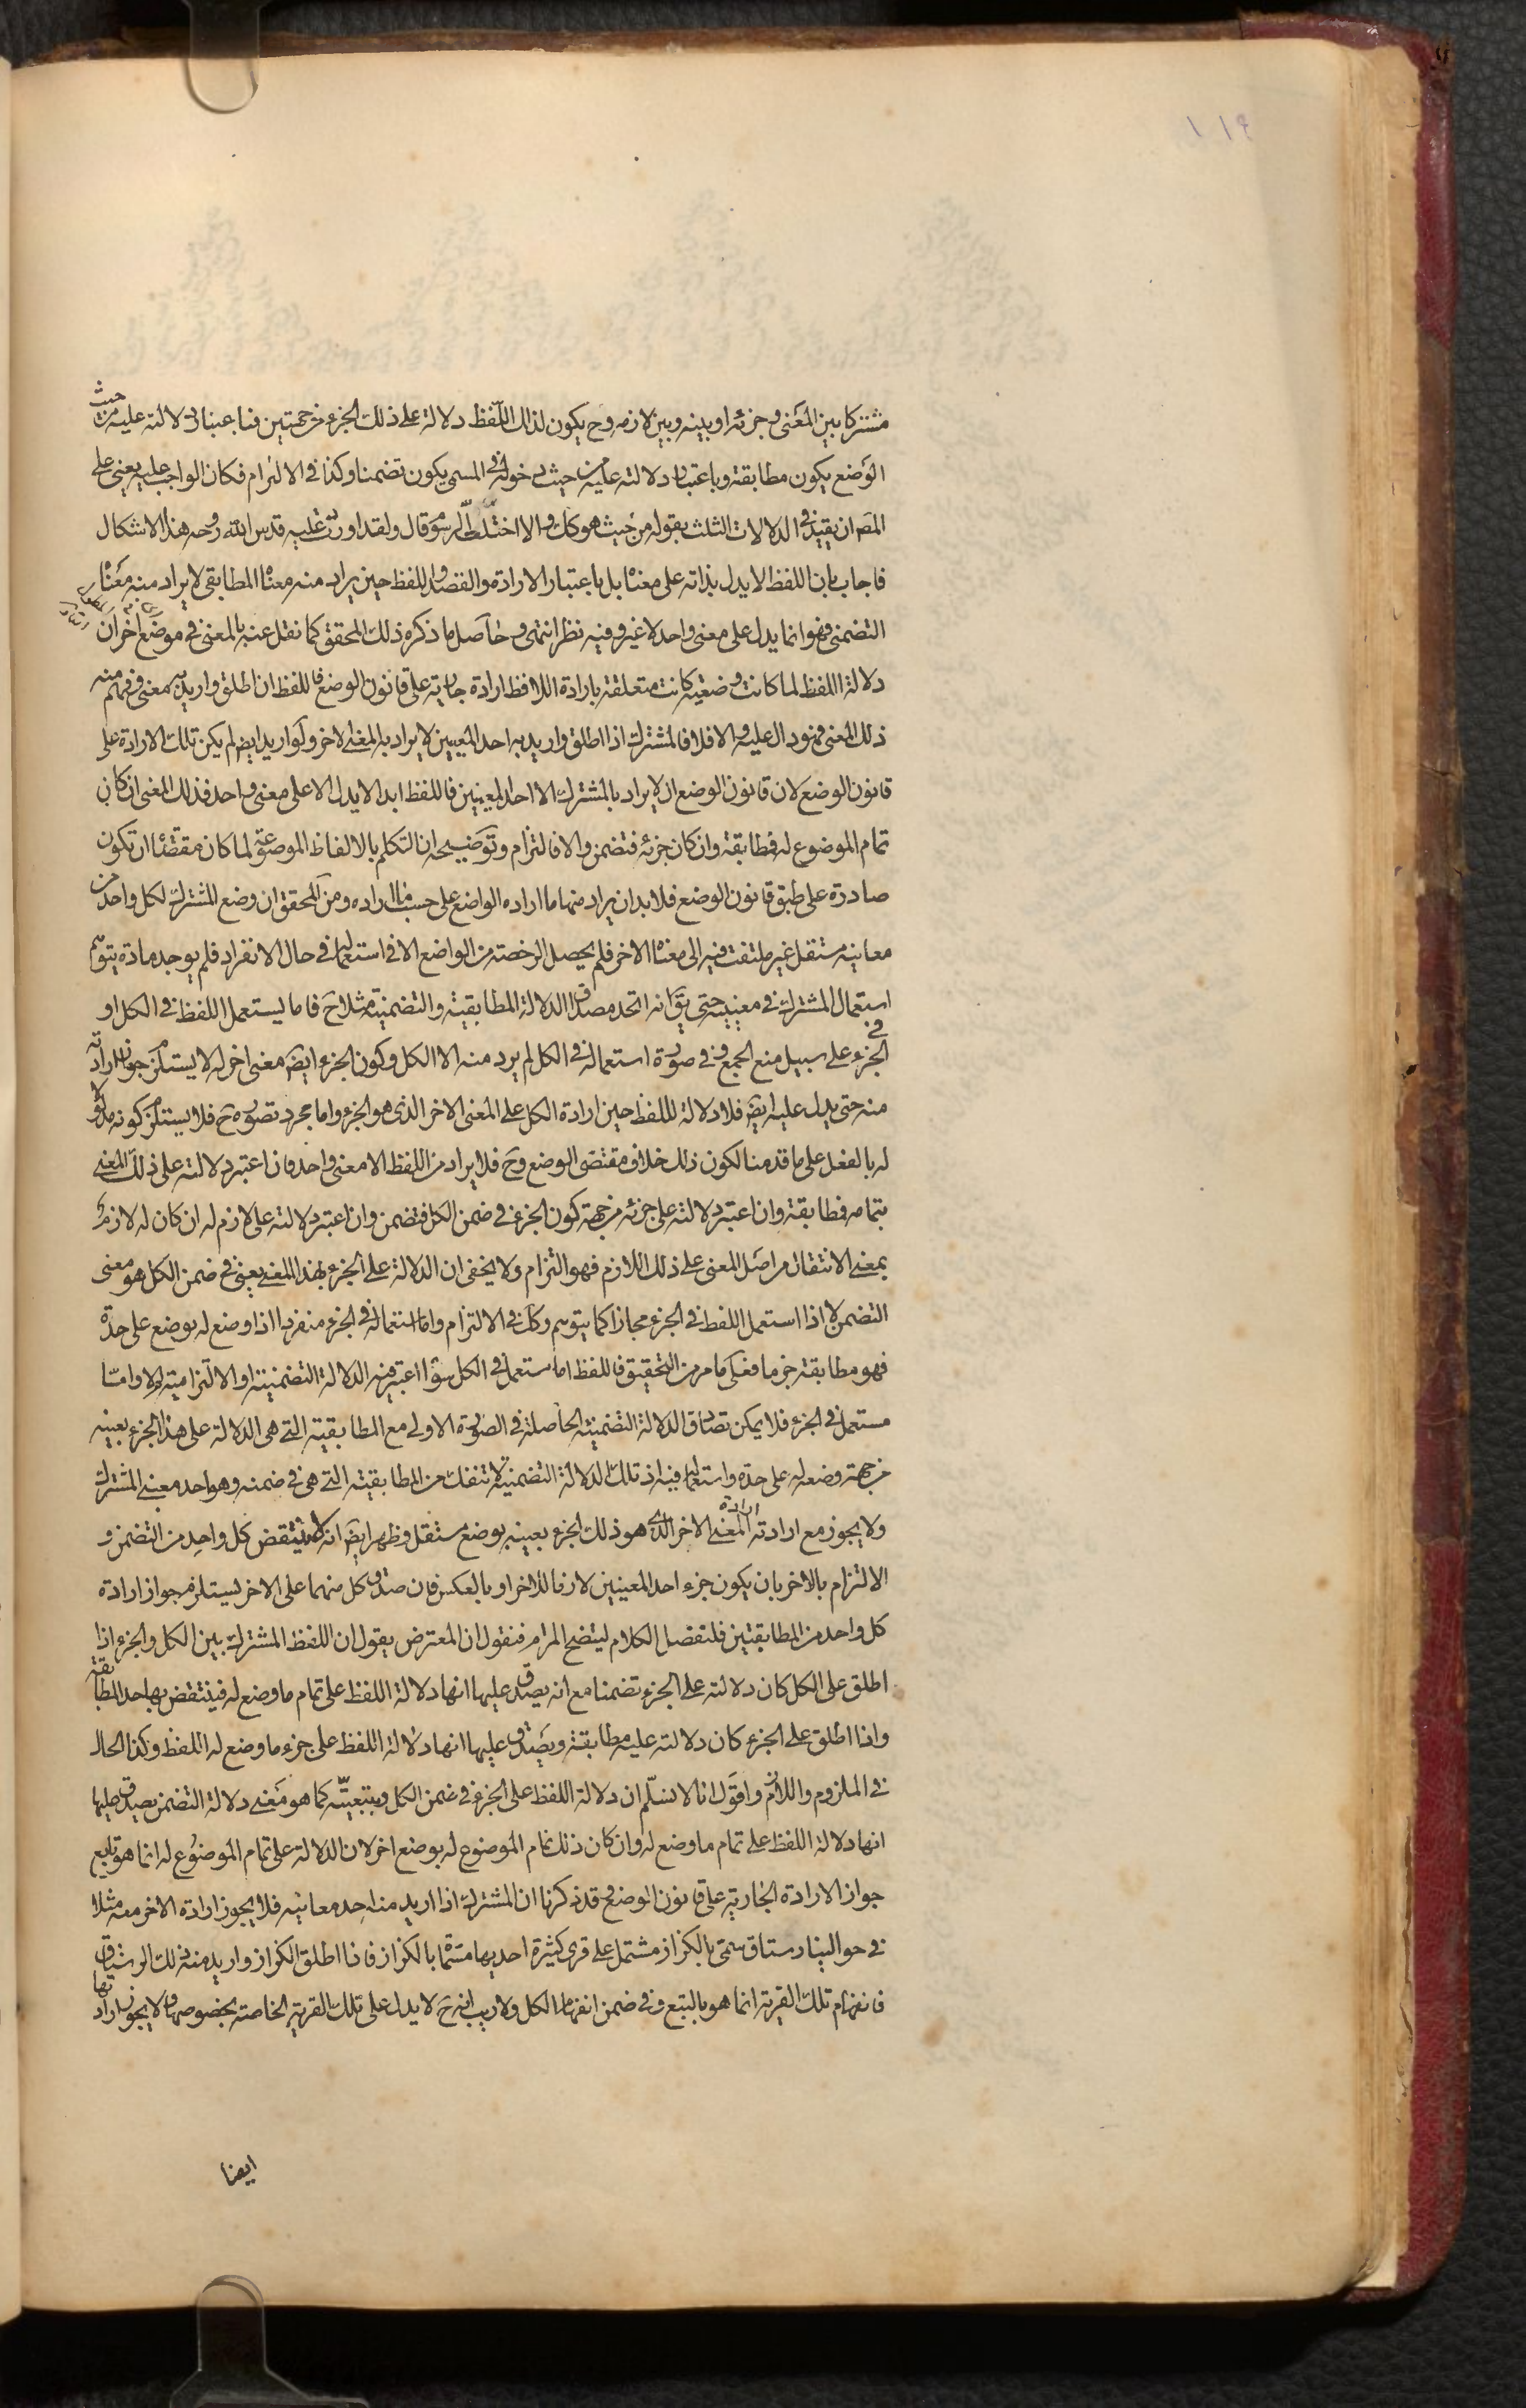 مشتركا بين المعنى و جزئه او بينه و بين لازمه و ح يكون لذلك اللفظ دلالة على ذلك الجزء من جهتين فباعتبار دلالته عليه من حيث
الوضع يكون مطابقة و باعتبار دلالته عليه من حيث دخوله فى المسمى يكون تضمنا و كذا فى الالتزام فكان الواجب عليه يعنى على
المصـ ان يقيد فى الدلالات الثلث بقوله من حيث هو كك و الا اختلط الرسوم قال و لقد اوردت عليه قدس الله روحه هذا الاشكال
فاجاب بان اللفظ لا يدل بذاته على معناه بل باعتبار الارادة و القصد و اللفظ حين يراد منه معناه المطابقى لا يراد منه معناه
التضمنى فهو انما يدل على معنى واحد لا غير و فيه نظر انتهى و حاصل ما ذكره ذلك المحقق كما نقل عنه بالمعنى فى موضع اخر ان
دلالة اللفظ لما كانت وضعية كانت متعلقة بارادة اللافظ ارادة جارية على قانون الوضع فاللفظ ان اطلق و اريد به معنى و فهم منه
ذلك المعنى فهو دال عليه و الا فلا فالمشترك اذا اطلق و اريد به احد المعنيين لا يراد به المعنى الاخر و لو اريد ايضـ لم يكن تلك الارادة على
قانون الوضع لان قانون الوضع ان لا يراد بالمشترك الا احد المعنيين فاللفظ ابدا لا يدل الا على معنى واحد فذلك المعنى ان كان
تمام الموضوع له فمطابقة و ان كان جزئه فتضمن و الا فالتزام و توضيحه ان التكلم بالالفاظ الموضوعة لما كان مقتضا ان تكون
صادرة على طبق قانون الوضع فلا بد ان يراد منها ما اراده الواضع على حسب ما اراده و من المحقق ان وضع المشترك لكل واحد من
معانيه مستقل غير ملتفت فيه الى معناه الاخر فلم يحصل الرخصة من الواضع الا فى استعمالها فى حال الانفراد فلم يوجد مادة يتوهم
استعمال المشترك فى معنييه حتى يقـ انه اتحد مصداق الدلالة المطابقية و التضمنية مثلا ح فاما يستعمل اللفظ فى الكل او
فى الجزء على سبيل منع الجمع و فى صورة استعماله فى الكل لم يرد منه الا الكل و كون الجزء ايضـ معنى اخر له لا يستلزم جواز ارادته
منه حتى يدل عليه ايضـ فلا دلالة للفظ حين ارادة الكل على المعنى الاخر الذى هو الجزء و اما مجرد تصوره ح فلا يستلزم كونه مدلولا
له بالفعل على ما قدمنا لكون ذلك خلاف مقتضى الوضع و ح فلا يراد من اللفظ الا معنى واحد فان اعتبر دلالته على ذلك المعنى
بتمامه فمطابقة و ان اعتبر دلالته على جزئه من جهة كون الجزء فى ضمن الكل فتضمن و ان اعتبر دلالته على لازم له ان كان له لازم
بمعنى الانتقال من اصل المعنى على ذلك اللازم فهو التزام و لا يخفى ان الدلالة على الجزء بهذا المعنى يعنى فى ضمن الكل هو معنى
التضمن لا اذا استعمل اللفظ فى الجزء مجازا كما يتوهم و كك فى الالتزام و اما استعماله فى الجزء منفردا اذا وضع له بوضع على حدة
فهو مطابقة جزما فعلى ما مر من التحقيق فاللفظ اما مستعمل فى الكل سواء اعتبر فيه الدلالة التضمنية او الالتزامية او لا و اما
مستعمل فى الجزء فلا يمكن تصادق الدلالة التضمنية الحاصلة فى الصورة الاولى مع المطابقية التى هى الدلالة على هذا الجزء بعينه
من جهة وضعه له على حدة و استعمالها فيه اذ تلك الدلالة التضمنية لا تنفك من المطابقية التى هى فى ضمنه و هو احد معنيى المشترك
و لا يجوز مع ارادته ارادة المعنى الاخر الذى هو ذلك الجزء بعينه بوضع مستقل و ظهر ايضـ انه لا ينتقض كل واحد من التضمن و
الالتزام بالاخر بان يكون جزء احد المعنيين لازما للاخر او بالعكس فان صدق كل منهما على الاخر يستلزم جواز ارادة
كل واحد من المطابقتين فلنفصل الكلام ليتضح المرام فنقول ان المعترض يقول ان اللفظ المشترك بين الكل و الجزء اذا
اطلق على الكل كان دلالته على الجزء تضمنا مع انه يصدق عليها انها دلالة اللفظ على تمام ما وضع له فينتقض بها حد المطابقة
و اذا اطلق على الجزء كان دلالته عليه مطابقة و يصدق عليها انها دلالة اللفظ على جزء ما وضع له اللفظ و كذا الحال
فى الملزوم و اللازم و اقول انا لا نسلم ان دلالة اللفظ على الجزء فى ضمن الكل و بتبعيته كما هو معنى دلالة التضمن يصدق عليها
انها دلالة اللفظ على تمام ما وضع له و ان كان ذلك تمام الموضوع له بوضع اخر لان الدلالة على تمام الموضوع له انما هو تابع
جواز الارادة الجارية على قانون الوضع و قد ذكرنا ان المشترك اذا اريد منه احد معانيه فلا يجوز ارادة الاخر معه مثلا
فى حوالينا رستاق سمى بالكزاز مشتمل على قرى كثيرة احديها مسماة بالكزاز فاذا اطلق الكزاز و اريد منه ذلك الرستاق
فانفهام تلك القرية انما هو بالتبع و فى ضمن انفهام الكل و لا ريب انه ح لا يدل على تلك القرية الخاصة بخصوصها و لا يجوز ارادتها
ايضا